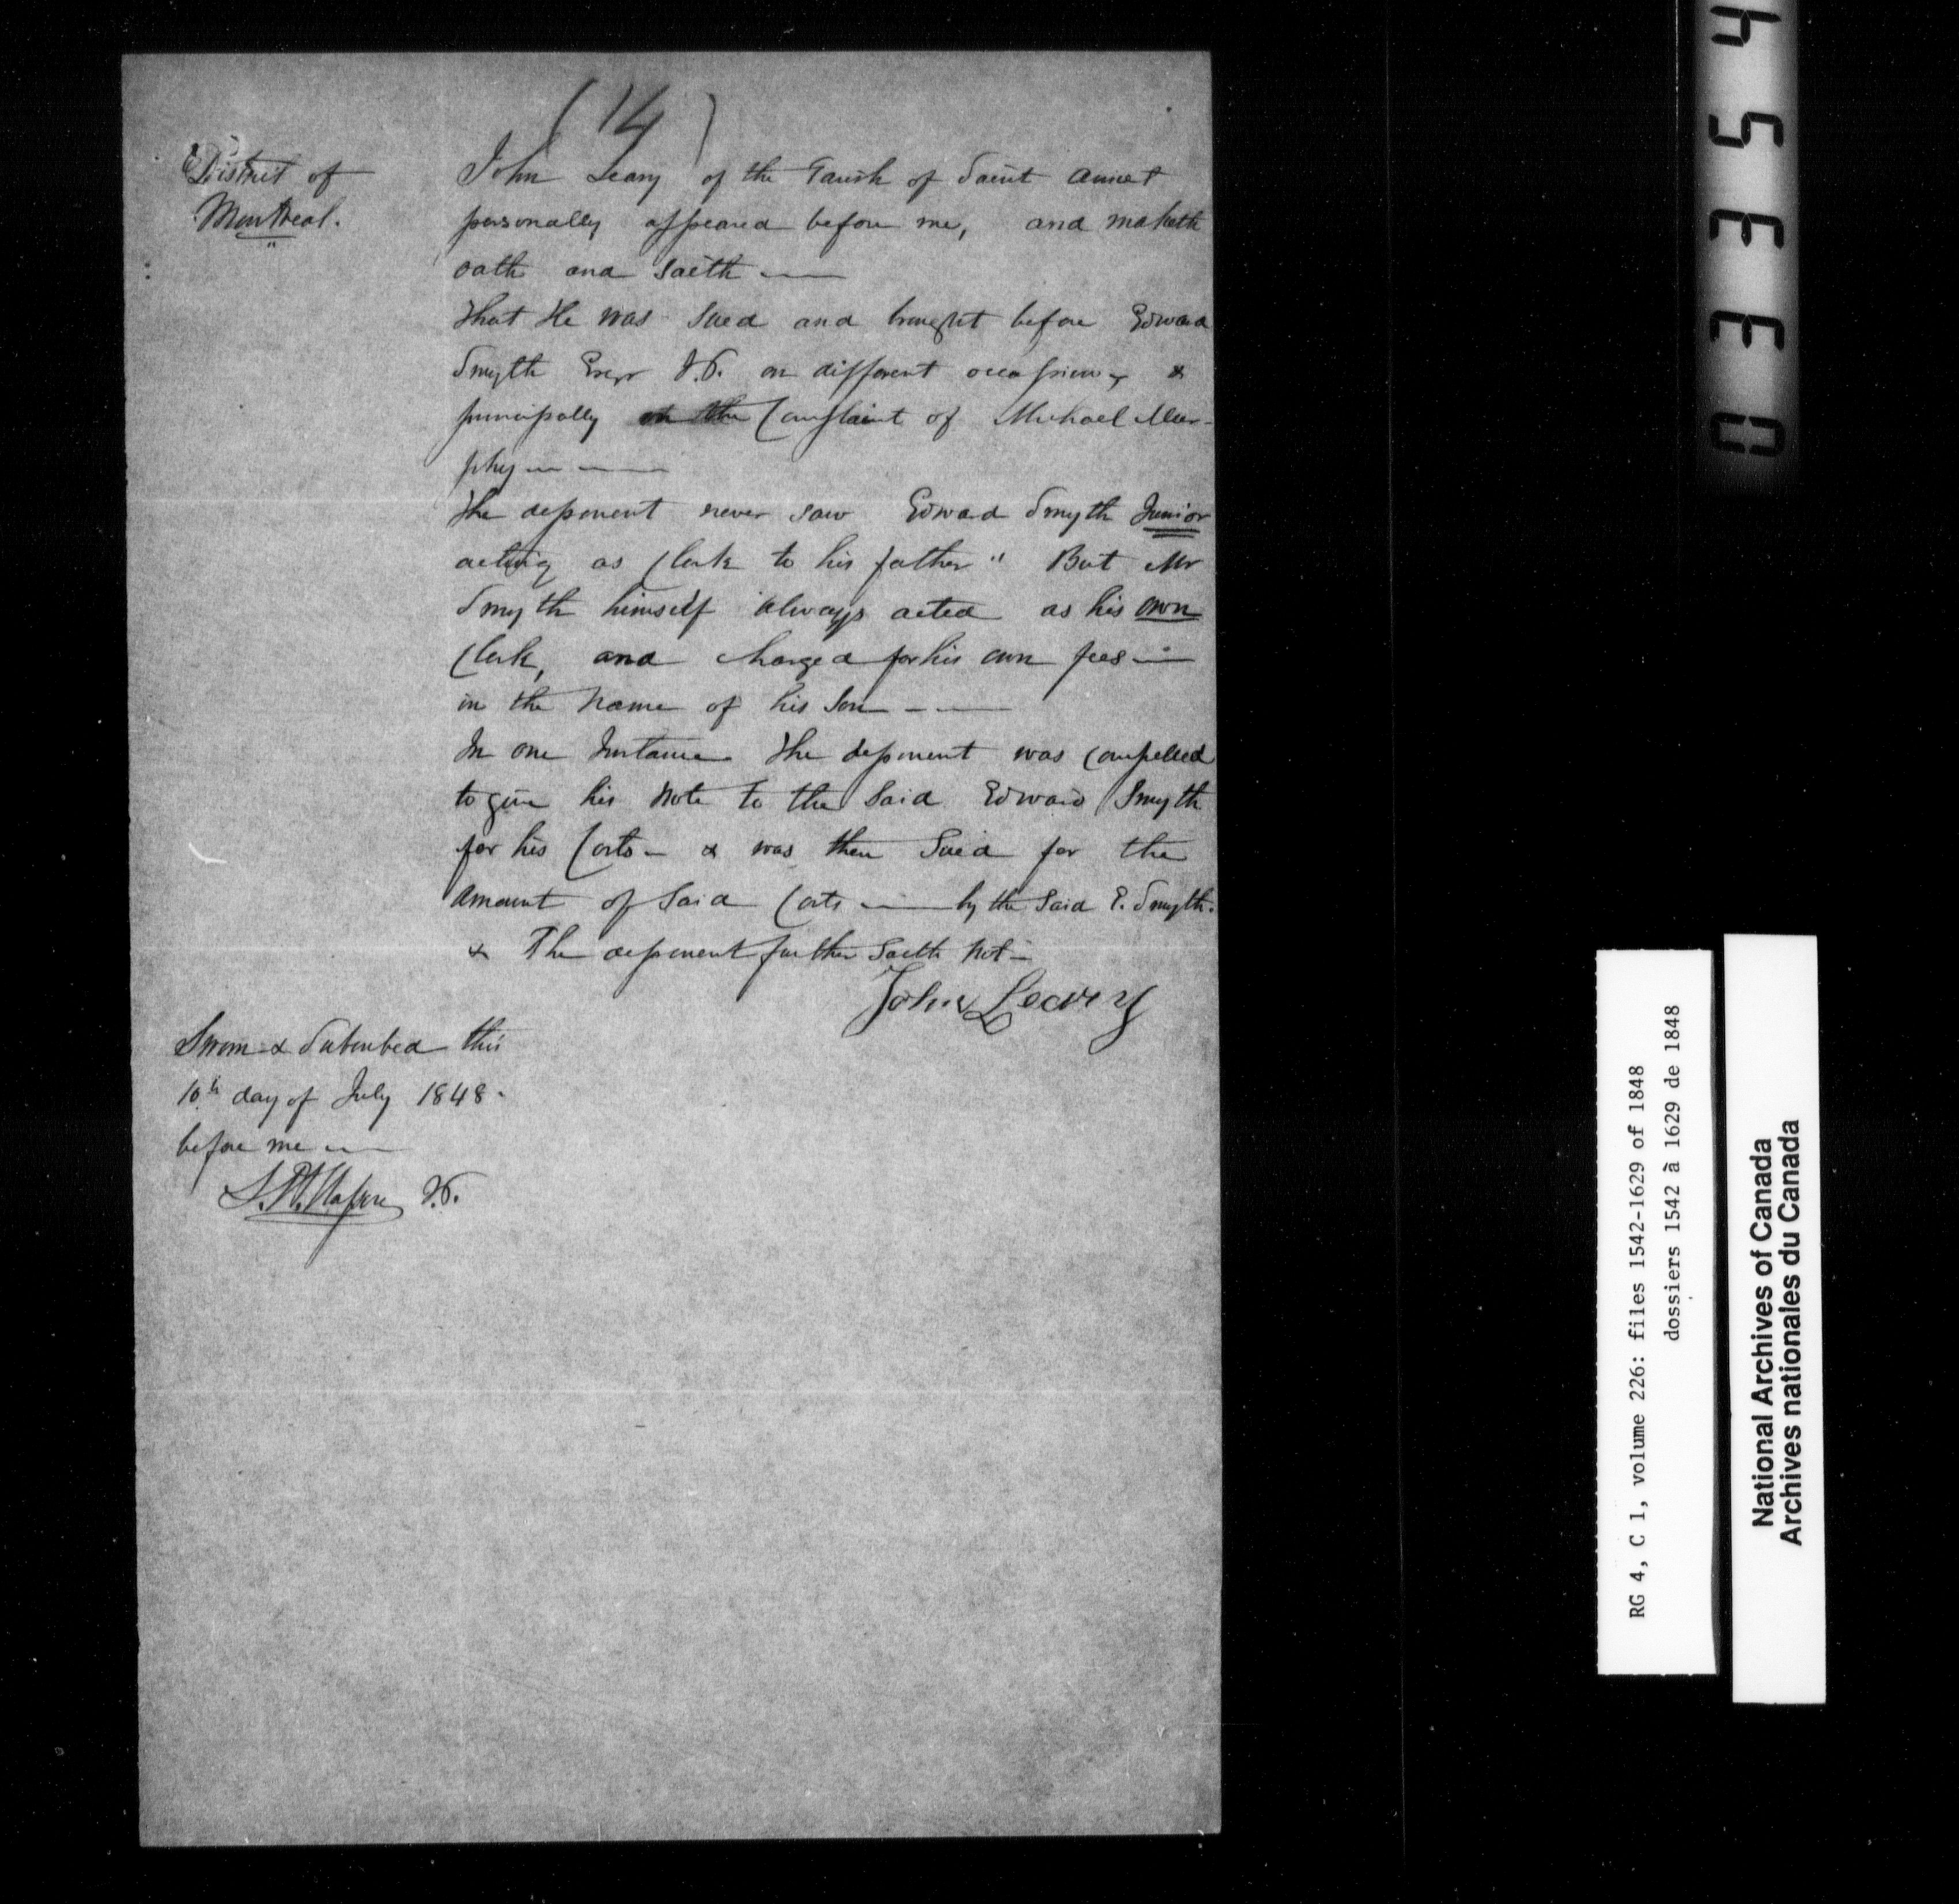 (14)
District of
Montreal.
John Leary of the Parish of Saint Annet
personally appeared before me, and maketh
oath and saith
That He was Sued and brought before Edward
Smyth Esqr J.P. on different occassions &
principally on the Complaint of Michael Mur-
phy
The deponent never saw Edward Smyth Junior
acting as Clerk to his father" But Mr
Smyth himself always acted as his own
Clerk, and charged for his own fees
in the name of his Son
In one Instance the deponent was Compelled
to give his Note to the Said Edward Smyth
for his Costs - & was then Sued for the
amount of Said Costs by the Said E. Smyth.
& The deponent further Saith Not -
John Leavry
Sworn & Subscribed this
10th day of July 1848.
before me
J.P.
03354
RG 4, C 1, volume 226: files 1542-1629 of 1848
dossiers 1542 à 1629 de 1848
National Archives of Canada
Archives nationales du Canada